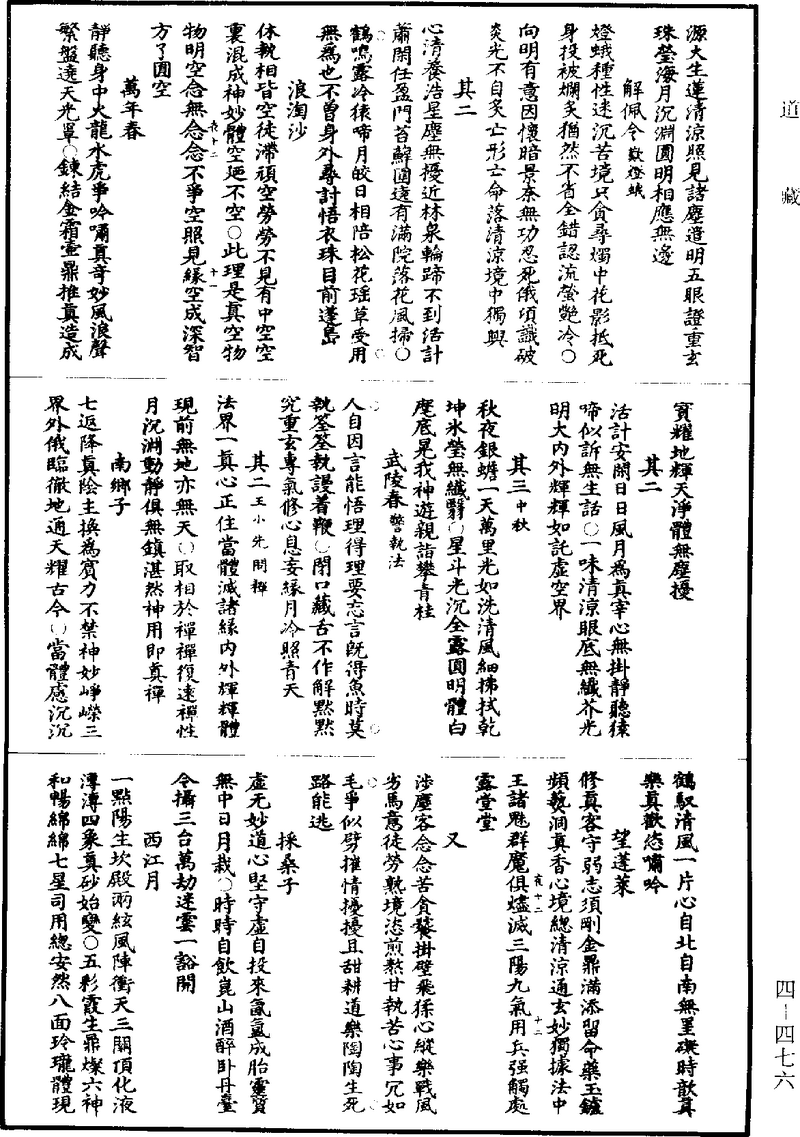 道藏
源大生蓮清涼照見諸塵遣明五眼證重玄
珠瑩海月沉淵圓明相應無邊
解佩令歎燈蛾
燈蛾種性迷沉苦境只貪尋燭中花影抵死
身投被爛炙猶然不省全錯認流螢艷冷○
向明有意因懷暗景柰無功忍死俄頃識破
炎光不自炙亡形亡命落清涼境中獨興
其二
心清養浩星塵無擾近林泉輪蹄不到活計
蕭閑任盈門苔蘚圍遶有滿院落花風掃○
鶴鳴露冷猿啼月皎日相陪松花瑶草受用
無為也不曾身外尋討悟衣珠目前蓬島
浪淘沙
休執相皆空徒滯頑空勞勞不見有中空空
裏混成神妙體空廼不空○此理是真空物
物明空念無念念不爭空照見緣空成深智
方了圓空
萬年春
靜聽身中火龍水虎爭吟嘯真奇妙風浪聲
繁盤遶天光罩○鍊結金霜壷鼎推真造成
寳耀地輝天淨體無塵擾
其二
活計安閑日日風月為真宰心無掛靜聽猿
啼似訴無生話○一味清涼眼底無纖芥光
明大内外輝輝如託虛空界
其三中秋
秋夜銀蟾一天萬里光如洗清風細拂拭乾
坤氷瑩無纖翳○星斗光沉全露圓明體白
麾底晃我神遊親詣攀青桂
武陵春警執法
人自因言能悟理得理要忘言既得魚時莫
執筌筌執謾着鞭○閉口藏舌不作解黙黙
究重玄專氣修心息妄緣月冷照青天
其二王小先問禪
法界一真心正住當體滅諸緣内外輝輝體
現前無地亦無天○取相於禪禪復遠禪性
月沉淵動靜俱無鎮湛然神用即真禪
南鄉子
七返降真陰主換為賓力不禁神妙崢嶸三
界外俄臨徹地通天耀古今○當體處沉沉
鶴馭清風一片心自北自南無罣礙時歆真
樂真歡悠嘯吟
望蓬萊
修真客守弱志須剛金鼎滿添留命藥玉鑪
頻爇洞真香心境總清涼通玄妙獨據法中
王諸魁群魔俱燼滅三陽九氣用兵强觸處
露堂堂
又
涉塵客念念苦貪饕掛壁飛猱心縱樂戰風
劣馬意徒勞熟境恣煎熬甘執苦心事冗如
毛爭似劈摧情擾擾且甜耕道樂陶陶生死
路能逃
採桑子
虛无妙道心堅守虛自投來氤氳成胎靈質
無中日月栽○時時自飲崑山酒醉卧丹臺
令攝三台萬劫迷雲一豁開
西江月
一點陽生坎殿兩絃風陣衝天三關頂化液
漙漙四象真砂始變○五彩霞生鼎燦六神
和暢綿綿七星司用總安然八面玲瓏體現
四－四七六